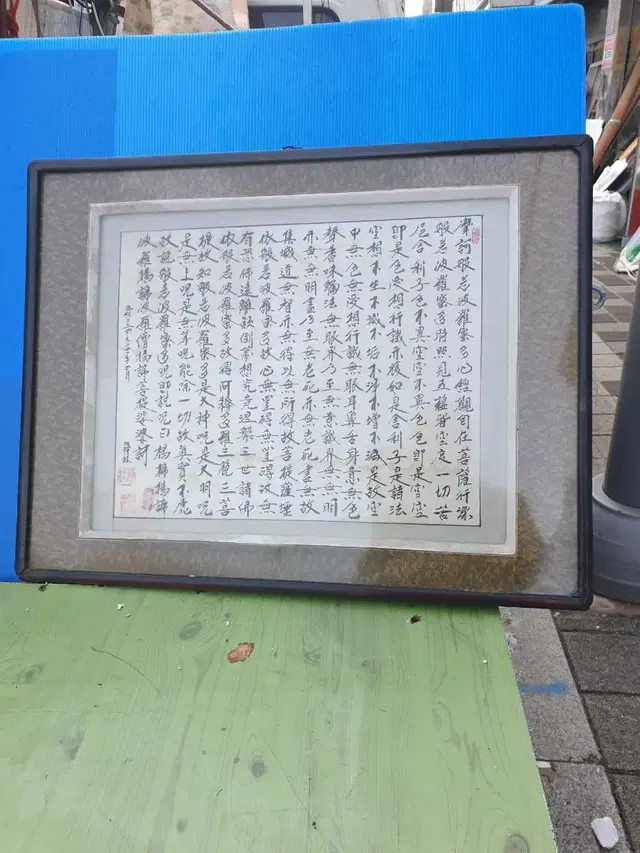 摩訶般若波羅蜜多心經觀自在菩薩行深
般若波羅蜜多時照見五蘊皆空度一切苦
厄舍利子色不異空空不異色色即是空空
即是色受想行識亦復如是舍利子是諸法
空想不生不滅不垢不淨不增不減是故空
中無色無受想行識無眼耳鼻舌身意無色
聲香味觸法無眼界乃至無意識界無無明
亦無無明盡乃至無老死亦無老死盡無
集滅道無智亦無得以無所得故菩提薩埵
依般若波羅蜜多故心無罣碍無罣碍故無
有恐怖遠離顚倒夢想究竟涅槃三世諸佛
依般若波羅蜜多故得阿耨多羅三藐三菩
提故知般若波羅蜜多是大神呪是大明呪
是無上呪是無等呪能除一切眞實不虛
故說般若波羅蜜多呪即說呪曰揭諦揭諦
波羅揭諦波羅僧揭諦菩提娑婆訶